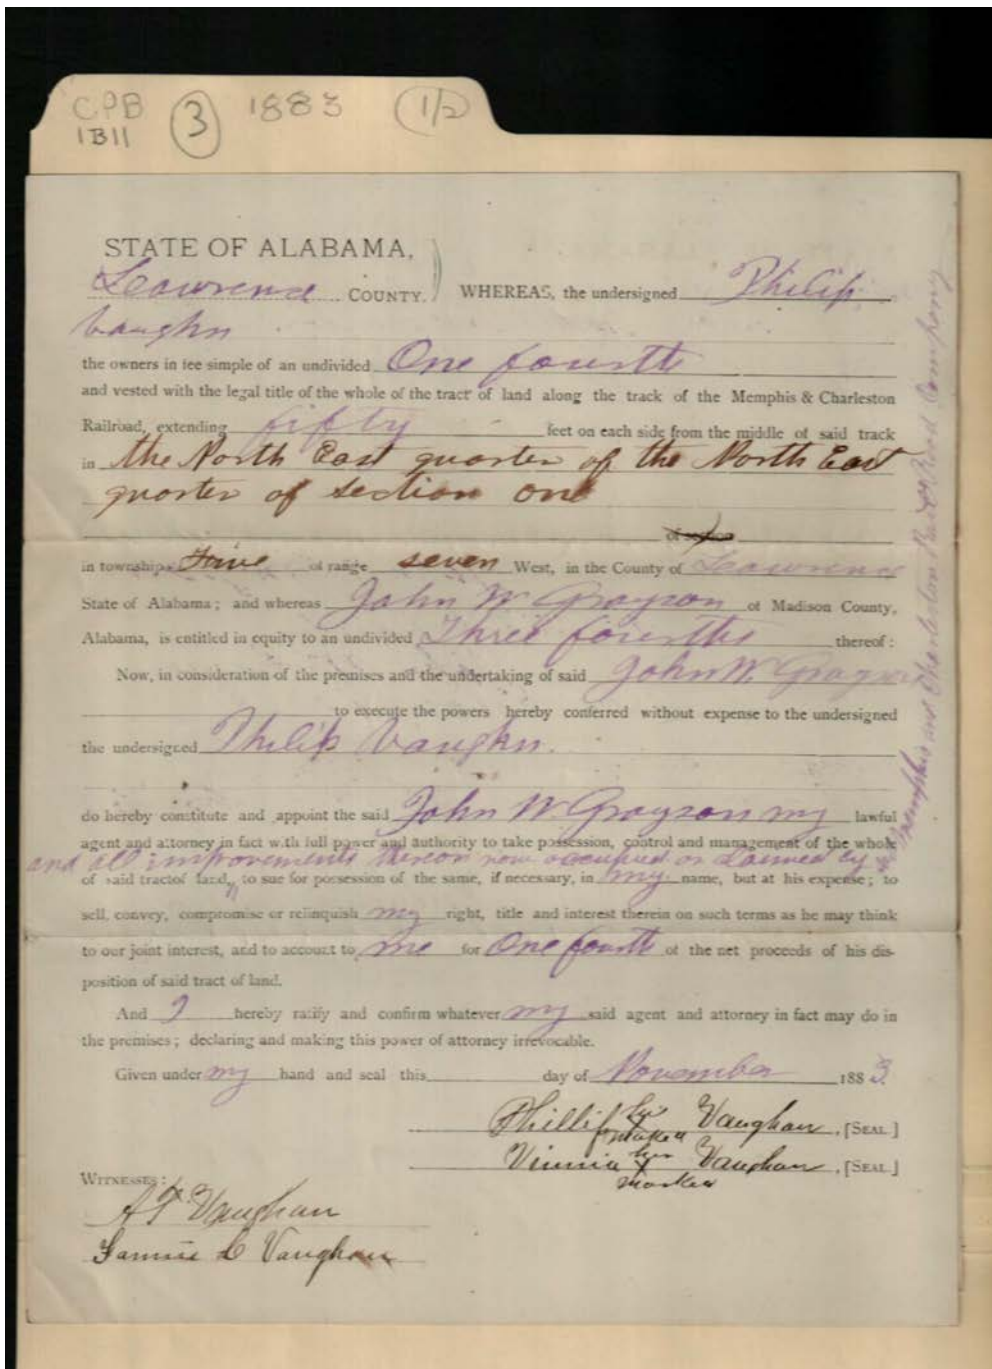 CPB 3 1883 (1/2)
1B11
STATE OF ALABAMA,
Lawrence COUNTY. } WHEREAS, the undersigned Philip
Vaughn
the owners in fee simple of an undivided One fourth
and vested with the legal title of the whole of the tract of land along the track of the Memphis & Charleston
Railroad, extending fifty feet on each side from the middle of said track
in the North East quarter of the North East
quarter of section one
of
in township Five of range seven West, in the County of Lawrence
State of Alabama; and whereas John W Grayson of Madison County,
Alabama, is entitled in equity to an undivided Three fourths thereof:
Now, in consideration of the premises and the undertaking of said John W. Grayson
to execute the powers hereby conferred without expense to the undersigned
the undersigned Philip Vaughn.
do hereby constitute and appoint the said John W. Grayson my lawful
agent and attorney in fact with full power and authority to take possession, control and management of the whole
and all improvements thereon now occupied or claimed by the Memphis and Charleston Rail Road Company
of said tract of land, to sue for possession of the same, if necessary, in my name, but at his expense; to
sell, convey, compromise or relinquish my right, title and interest therein on such terms as he may think
to our joint interest, and to account to me for One fourth of the net proceeds of his dis-
position of said tract of land.
And I hereby ratify and confirm whatever my said agent and attorney in fact may do in
the premises; declaring and making this power of attorney irrevocable.
Given under my hand and seal this day of November 1883.
Phillip his X marke Vaughan, [SEAL]
Vinnia her X marke Vaughan, [SEAL]
WITNESSES:
Vaughan
Vaughan